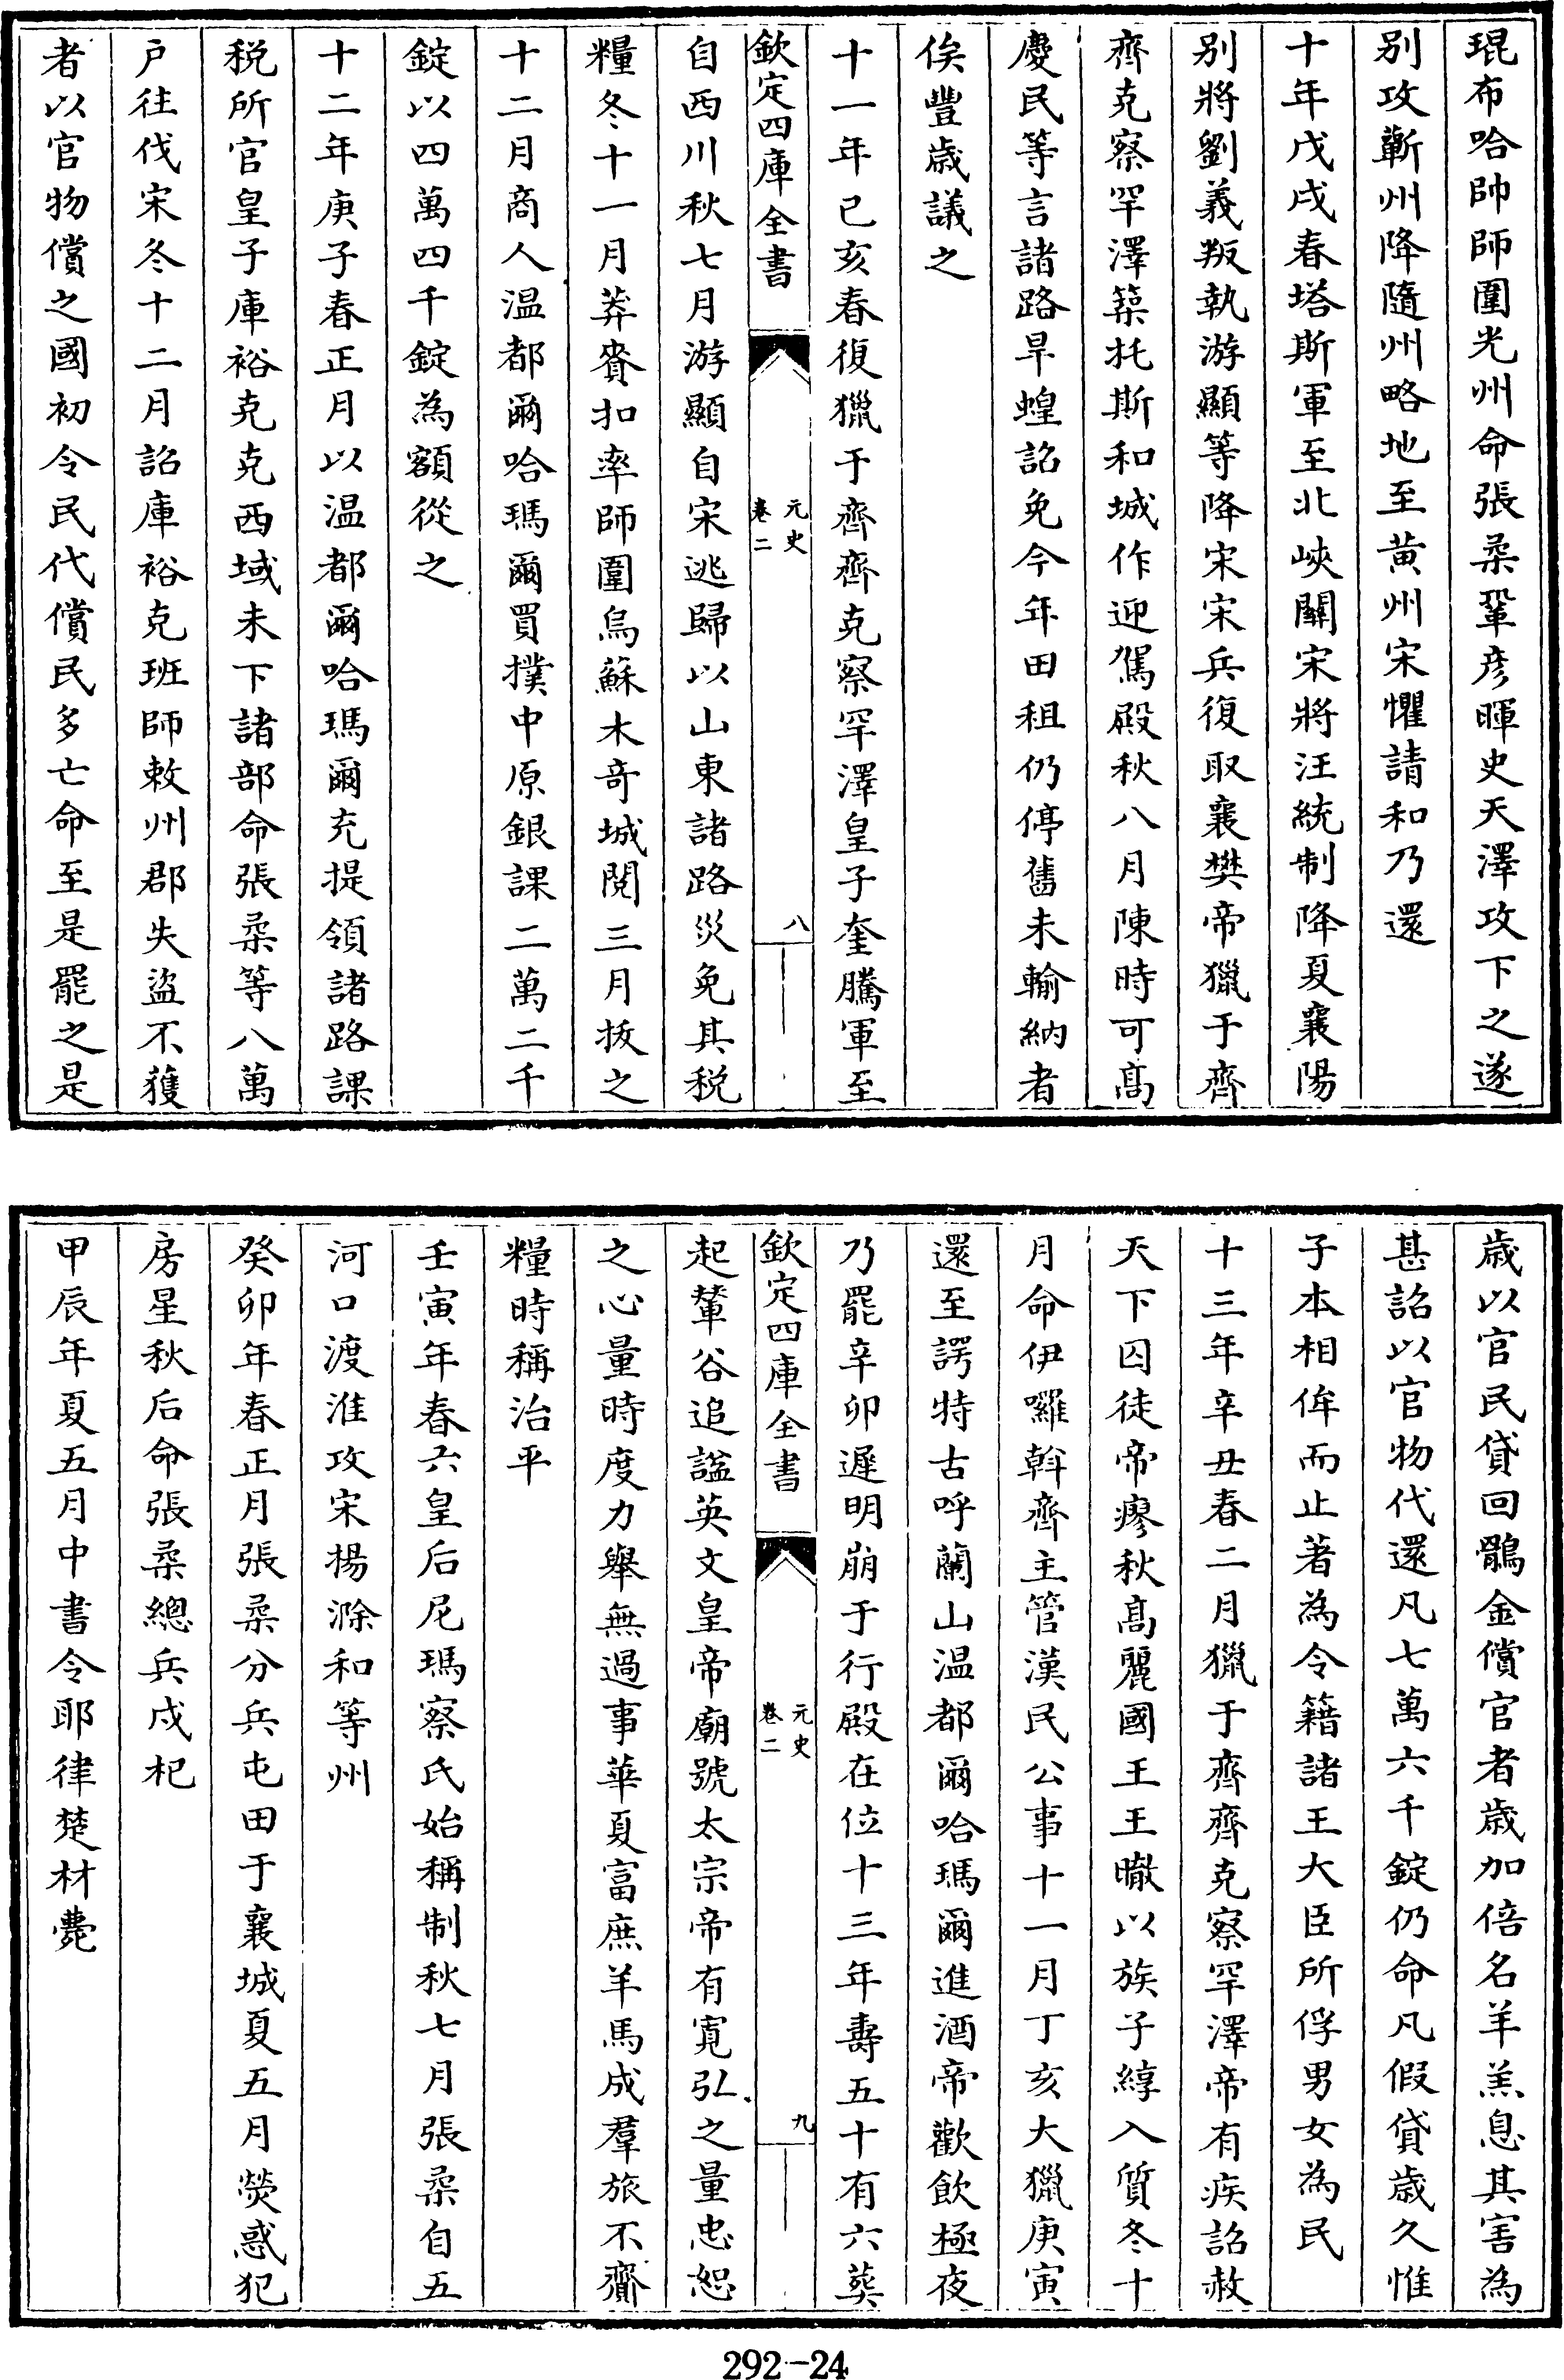 琨布哈帥師圍光州命張柔鞏彦暉史天澤攻下之遂
别攻蘄州降隨州略地至黄州宋懼請和乃還
十年戊戌春塔斯軍至北峽關宋將汪統制降夏襄陽
别將劉義叛執游顯等降宋宋兵復取襄樊帝獵于齊
齊克察罕澤築托斯和城作迎駕殿秋八月陳時可髙
慶民等言諸路旱蝗詔免今年田租仍停舊未輸納者
俟豐歲議之
十一年己亥春復獵于齊齊克察罕澤皇子奎騰軍至
欽定四庫全書
元史
卷二
八
自西川秋七月游顯自宋逃歸以山東諸路災免其税
糧冬十一月莽賚扣率師圍烏蘇木竒城閱三月拔之
十二月商人温都爾哈瑪爾買撲中原銀課二萬二千
錠以四萬四千錠為額從之
十二年庚子春正月以温都爾哈瑪爾充提領諸路課
税所官皇子庫裕克克西域未下諸部命張柔等八萬
户往伐宋冬十二月詔庫裕克班師敕州郡失盜不獲
者以官物償之國初令民代償民多亡命至是罷之是
歲以官民貸回鶻金償官者歲加倍名羊羔息其害為
甚詔以官物代還凡七萬六千錠仍命凡假貸歲久惟
子本相侔而止著為令籍諸王大臣所俘男女為民
十三年辛丑春二月獵于齊齊克察罕澤帝有疾詔赦
天下囚徒帝瘳秋髙麗國王王㬚以族子綧入質冬十
月命伊囉斡齊主管漢民公事十一月丁亥大獵庚寅
還至諤特古呼蘭山温都爾哈瑪爾進酒帝歡飲極夜
乃罷辛卯遲明崩于行殿在位十三年壽五十有六葬
欽定四庫全書
元史
卷二
九
起輦谷追諡英文皇帝廟號太宗帝有寛弘之量忠恕
之心量時度力舉無過事華夏富庶羊馬成羣旅不齎
糧時稱治平
壬寅年春六皇后尼瑪察氏始稱制秋七月張柔自五
河口渡淮攻宋揚滁和等州
癸卯年春正月張柔分兵屯田于襄城夏五月熒惑犯
房星秋后命張柔總兵戍杞
甲辰年夏五月中書令耶律楚材薨
292-24